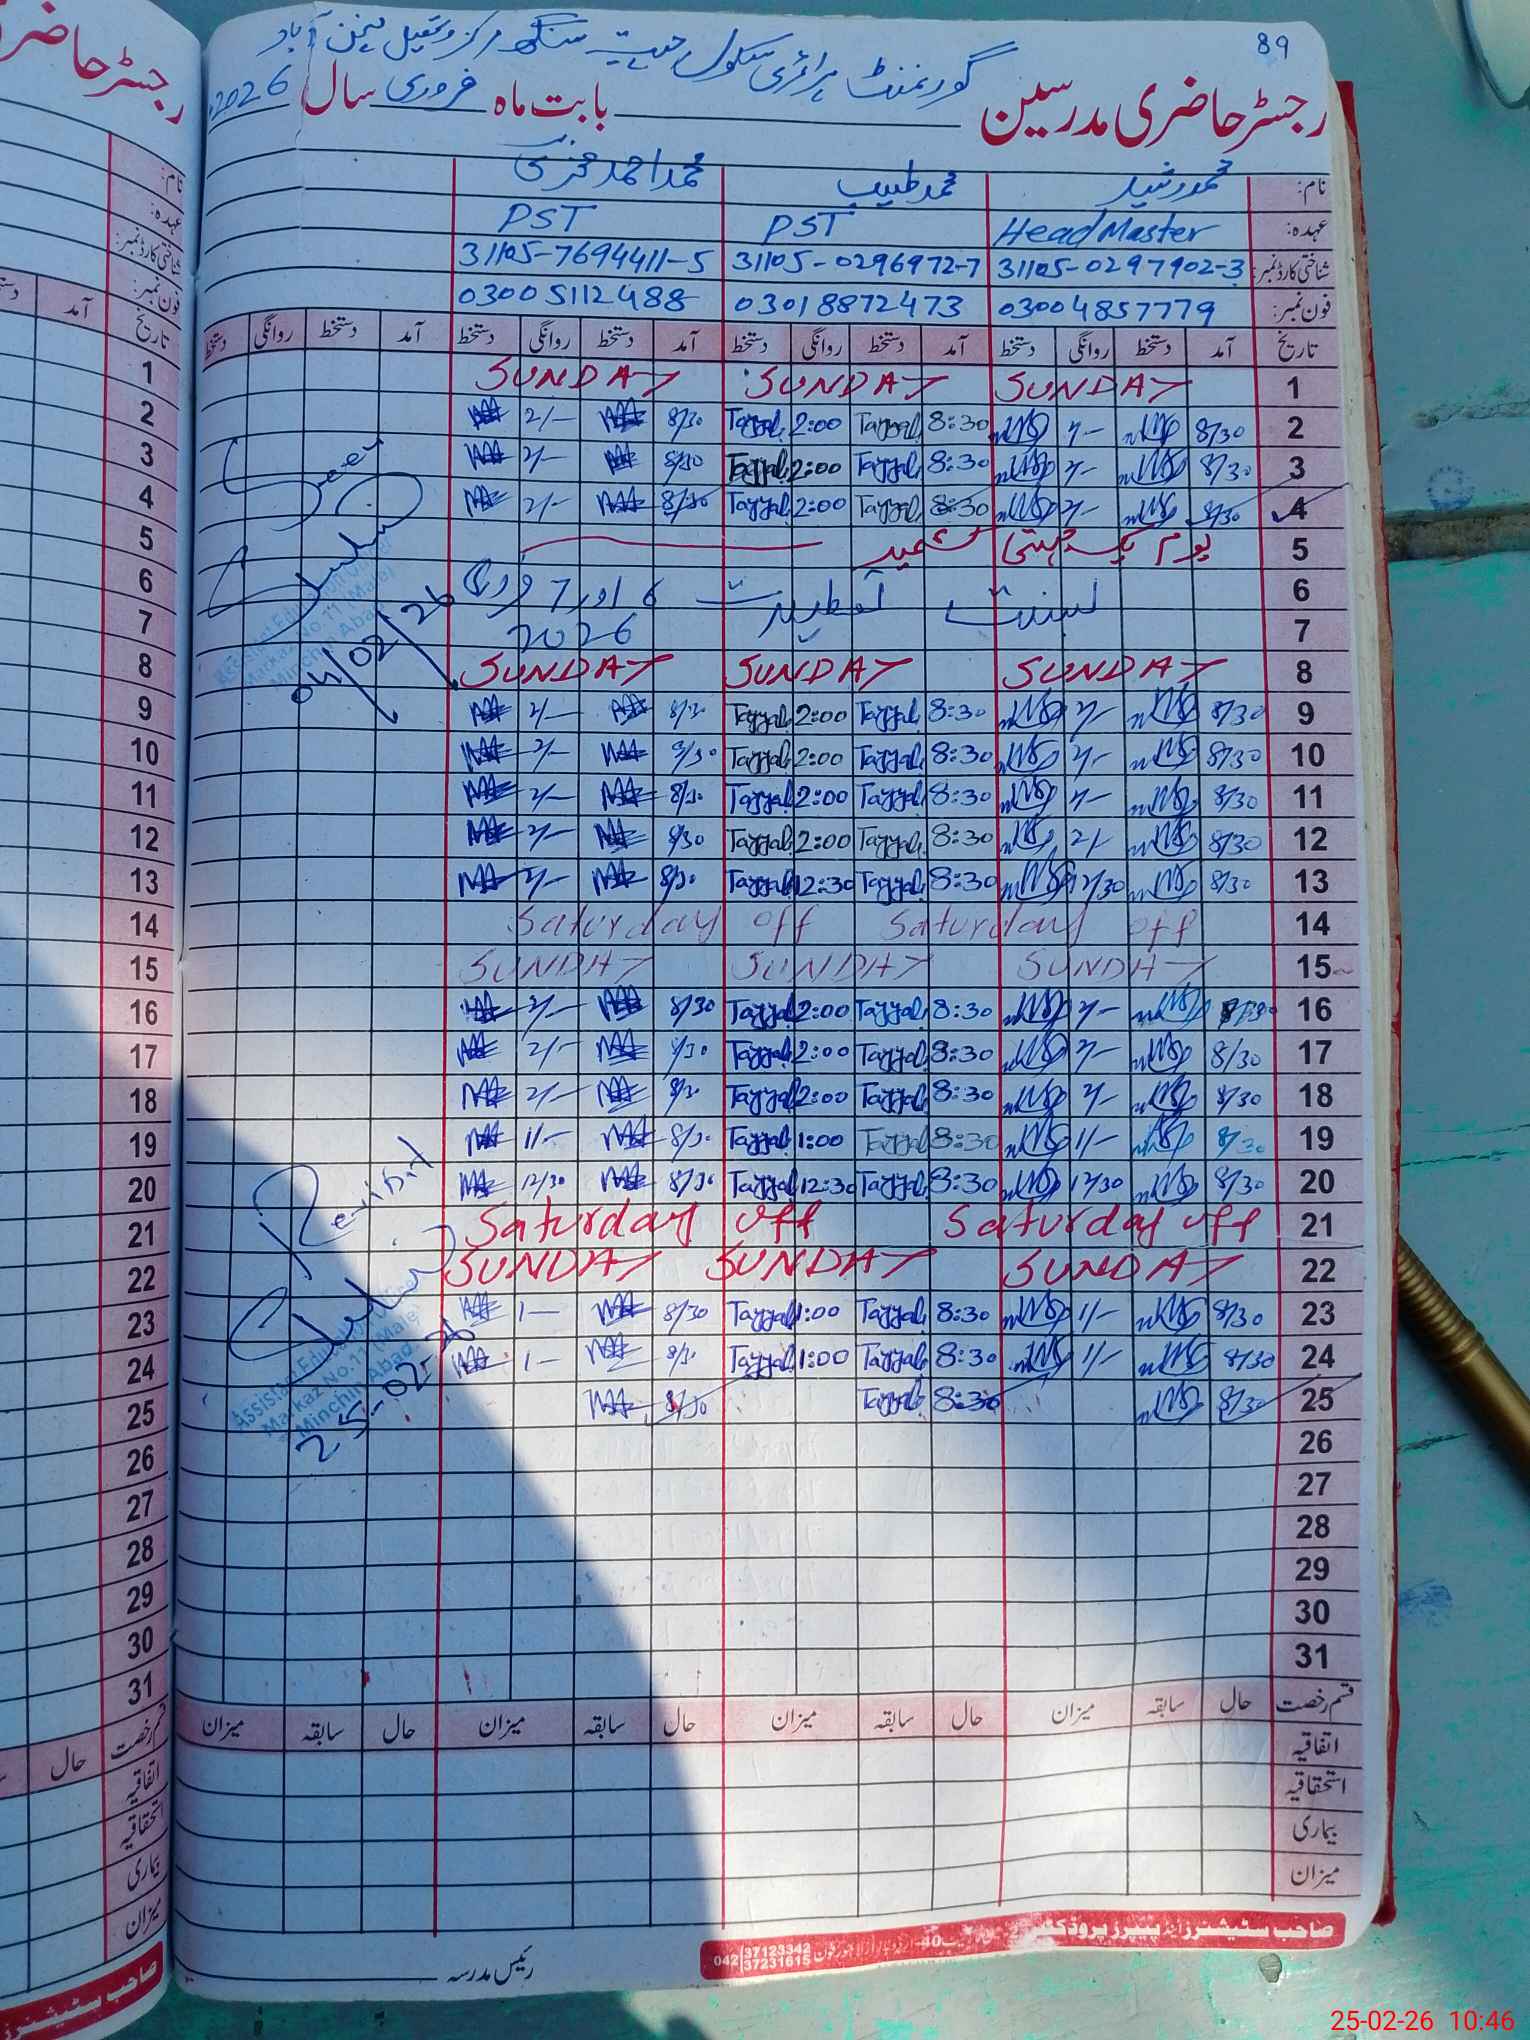 89
گورنمنٹ پرائمری سکول جیت سنگھ مرکز و تحصیل منچن آباد
رجسٹر حاضری مدرسین بابت ماہ فروری سال 2026
نام: محمد رشید محمد طیب محمد احمد
عہدہ: Head Master PST PST
شناختی کارڈ نمبر: 31105-0297902-3 31105-0296972-7 31105-7694411-5
فون نمبر: 03004857779 03018872473 03005112488
تاریخ آمد دستخط روانگی دستخط آمد دستخط روانگی دستخط آمد دستخط روانگی دستخط آمد دستخط روانگی دستخط
1 SUNDAY SUNDAY SUNDAY
2 8/30 2/- 8:30 Tayyab 2:00 Tayyab 8/30 2/-
3 8/30 2/- 8:30 Tayyab 2:00 Tayyab 8/30 2/-
4 8/30 2/- 8:30 Tayyab 2:00 Tayyab 8/30 2/-
5 یوم یکجہتی کشمیر
6 بسنت تعطیلات 6 اور 7 فروری
7 2026
8 SUNDAY SUNDAY SUNDAY
9 8/30 2/- 8:30 Tayyab 2:00 Tayyab 8/30 2/-
10 8/30 2/- 8:30 Tayyab 2:00 Tayyab 8/30 2/-
11 8/30 2/- 8:30 Tayyab 2:00 Tayyab 8/30 2/-
12 8/30 2/- 8:30 Tayyab 2:00 Tayyab 8/30 2/-
13 8/30 12/30 8:30 Tayyab 12:30 Tayyab 8/30 2/-
14 Saturday off Saturday off
15 SUNDAY SUNDAY SUNDAY
16 8/30 2/- 8:30 Tayyab 2:00 Tayyab 8/30 2/-
17 8/30 2/- 8:30 Tayyab 2:00 Tayyab 8/30 2/-
18 8/30 2/- 8:30 Tayyab 2:00 Tayyab 8/30 2/-
19 8/30 1/- 8:30 Tayyab 1:00 Tayyab 8/30 1/-
20 8/30 12/30 8:30 Tayyab 12:30 Tayyab 8/30 12/30
21 Saturday off Saturday off
22 SUNDAY SUNDAY SUNDAY
23 8/30 1/- 8:30 Tayyab 1:00 Tayyab 8/30 1-
24 8/30 1/- 8:30 Tayyab 1:00 Tayyab 8/30 1-
25 8/30 8:30 Tayyab 8/30
26
27
28
29
30
31
قسم رخصت حال سابقہ میزان حال سابقہ میزان حال سابقہ میزان حال سابقہ میزان
اتفاقیہ
استحقاقیہ
بیماری
میزان
Seen
Assistant Education Officer
Markaz No.11 (Male)
Minchin Abad
04/02/26
Revisit
Assistant Education Officer
Markaz No.11 (Male)
Minchin Abad
25-02-26
صاحب سٹیشنرز اینڈ پیپرز پروڈکٹس
042 37123342
37231615
رئیس مدرسہ
رجسٹر حاضری
نام:
عہدہ:
شناختی کارڈ نمبر:
فون نمبر:
تاریخ آمد
1
2
3
4
5
6
7
8
9
10
11
12
13
14
15
16
17
18
19
20
21
22
23
24
25
26
27
28
29
30
31
قسم رخصت حال
اتفاقیہ
استحقاقیہ
بیماری
میزان
صاحب سٹیشنرز
25-02-26 10:46